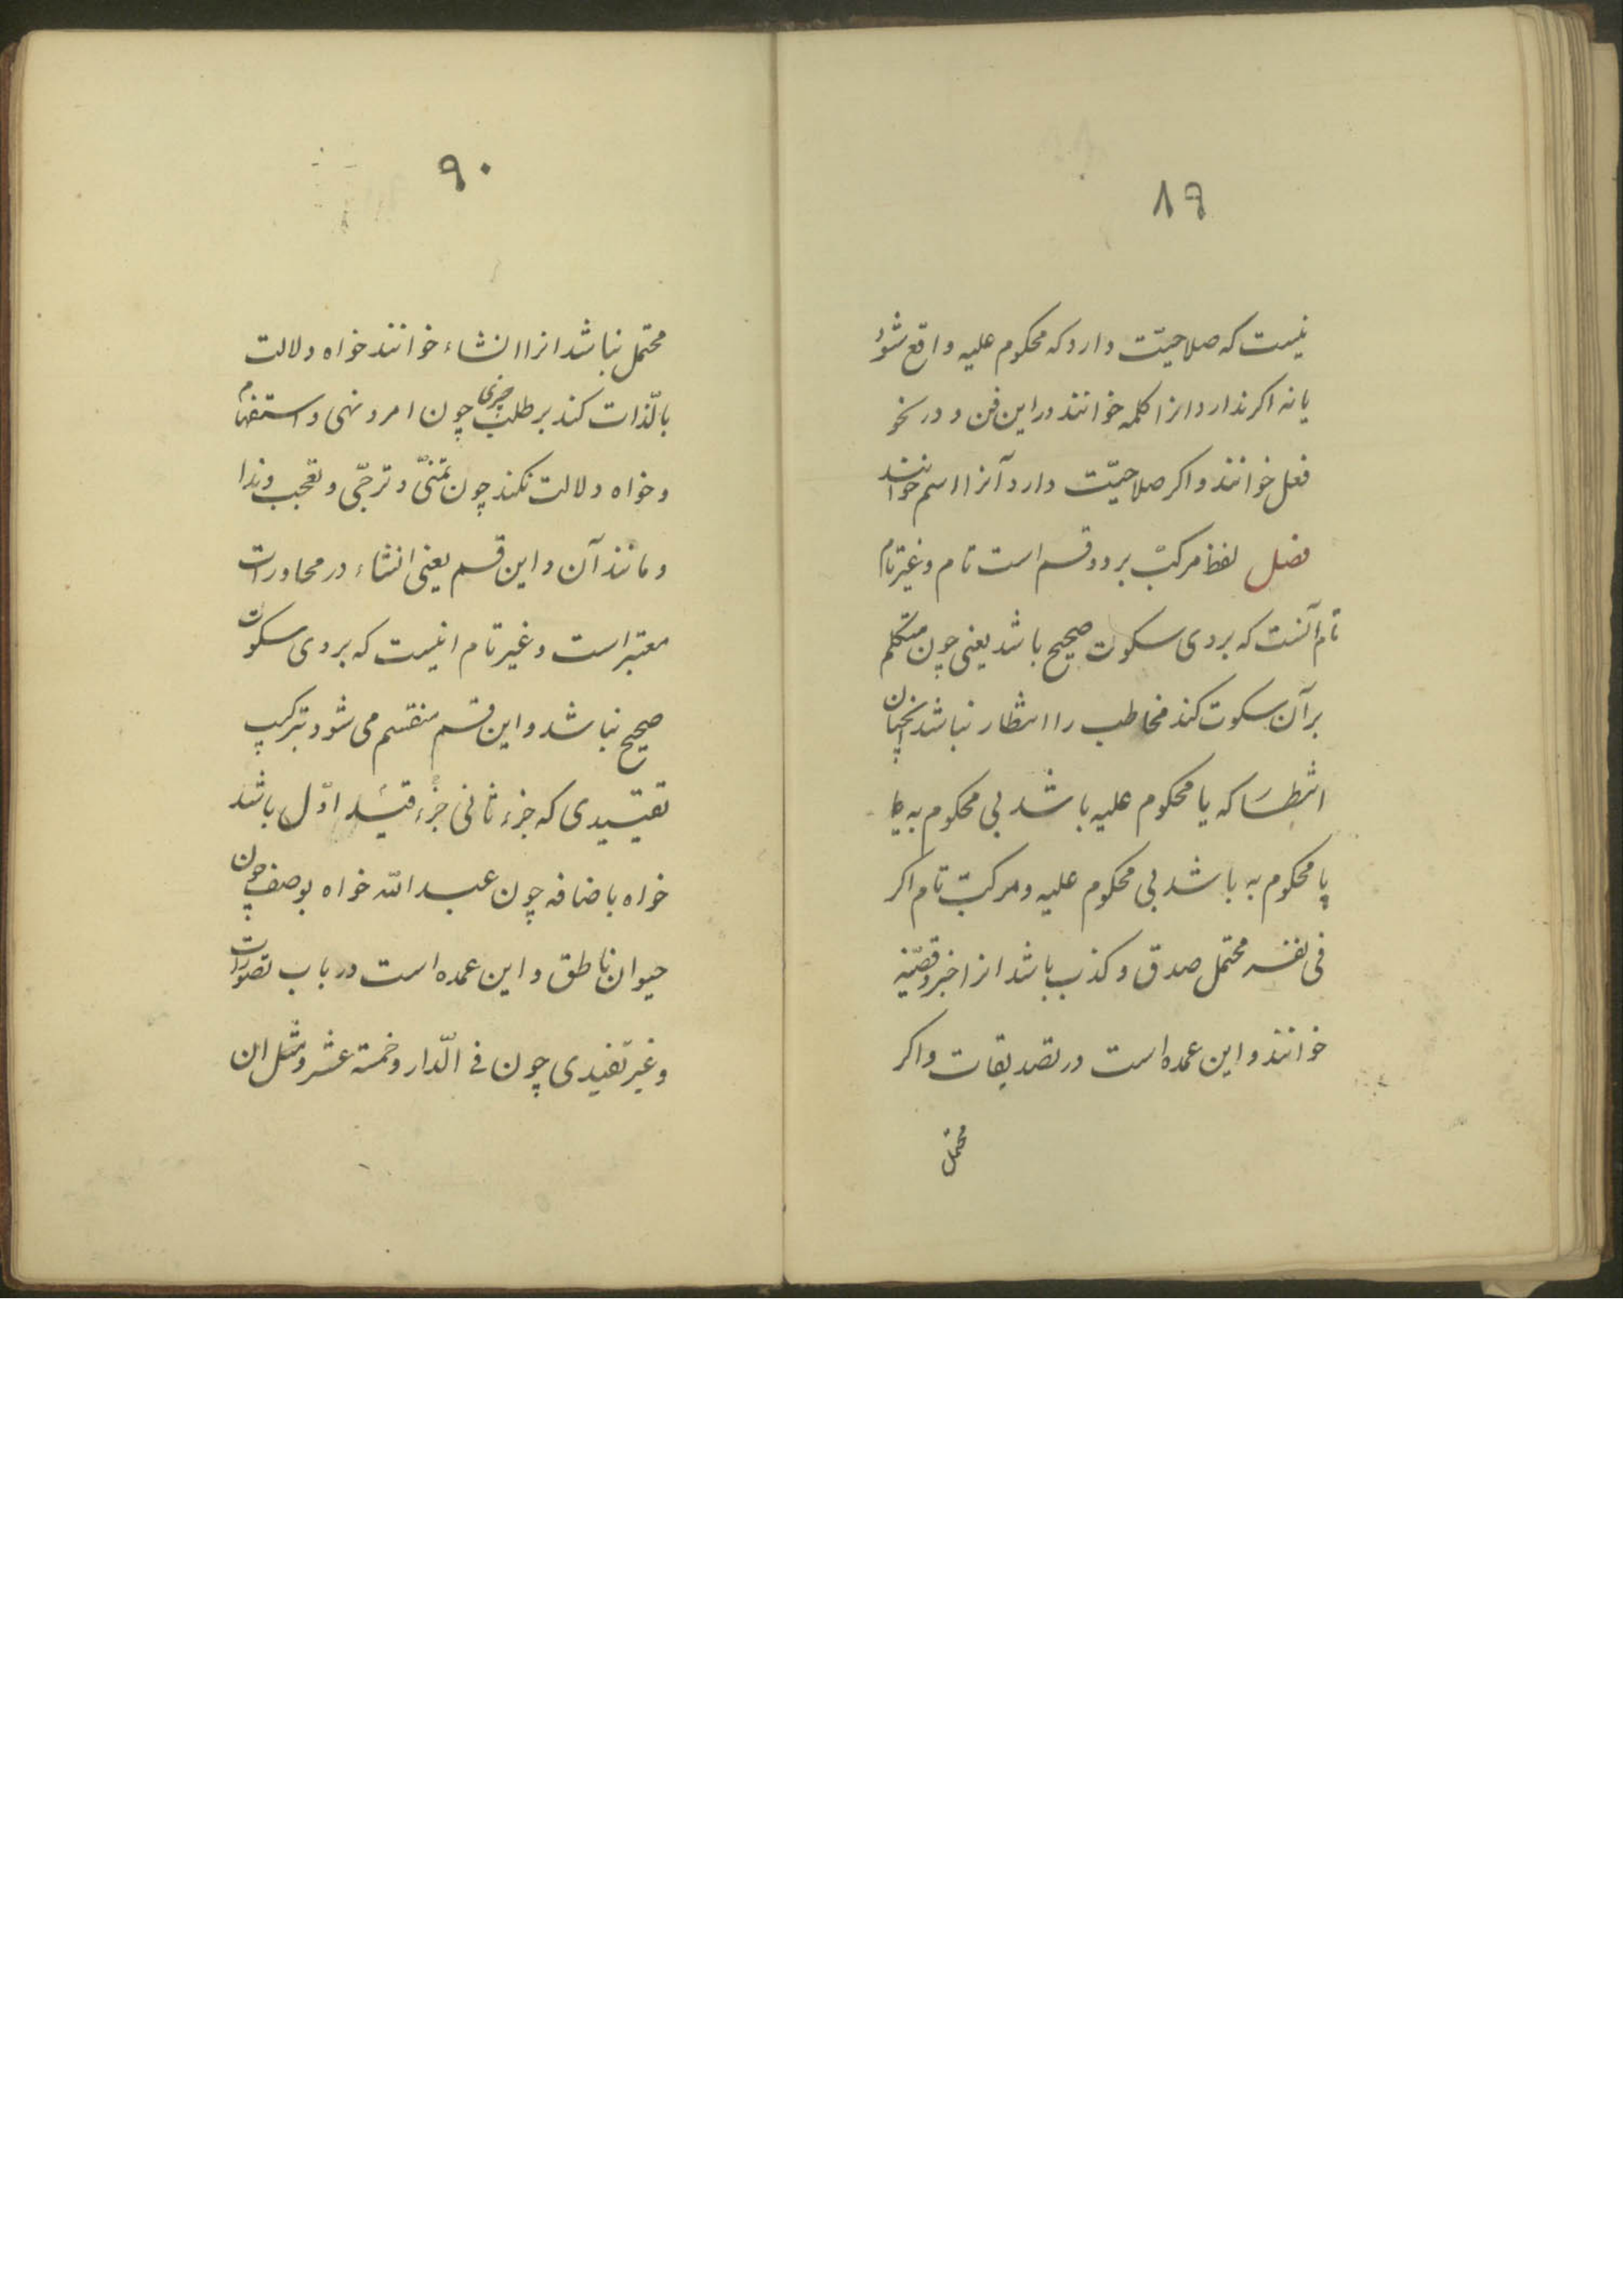 ۸۹
نیست که صلاحیّت دارد که محکوم علیه واقع شود
یا نه اکر ندارد انرا کلمه خوانند در این فن و در نحو
فعل خوانند و اکر صلاحیّت دارد آنرا اسم خوانند
فصل لفظ مرکبّ بر دو قسم است تام و غیر تام
تام آنست که بر وی سکوت صحیح باشد یعنی چون متکلم
بر آن سکوت کند مخاطب را انتظار نباشد انچنان
انتظار که با محکوم علیه باشد بی محکوم به
یا محکوم به باشد بی محکوم علیه و مرکبّ تام اکر
فی نفسه محتمل صدق و کذب باشد انرا خبر و قضیّه
خوانند و این عمده است در تصدیقات و اکر
محتمل
۹۰
محتمل نباشد انرا انشاء خوانند خواه دلالت
بالّذات کند بر طلب چیزی چون امر و نهی و استفهام
و خواه دلالت نکند چون تمنّی و ترجّی و تعجب و ندا
و مانند آن و این قسم یعنی انشاء در محاورات
معتبر است و غیر تام انیست که بر وی سکوت
صحیح نباشد و این قسم منقسم می شود بترکیب
تقییدی که جزء ثانی جزء قید اوّل باشد
خواه باضافه چون عبد الله خواه بوصف چون
حیوان ناطق و این عمده است در باب تصورات
و غیر تقیدی چون فی الّدار و خمسة عشر و مثل ان